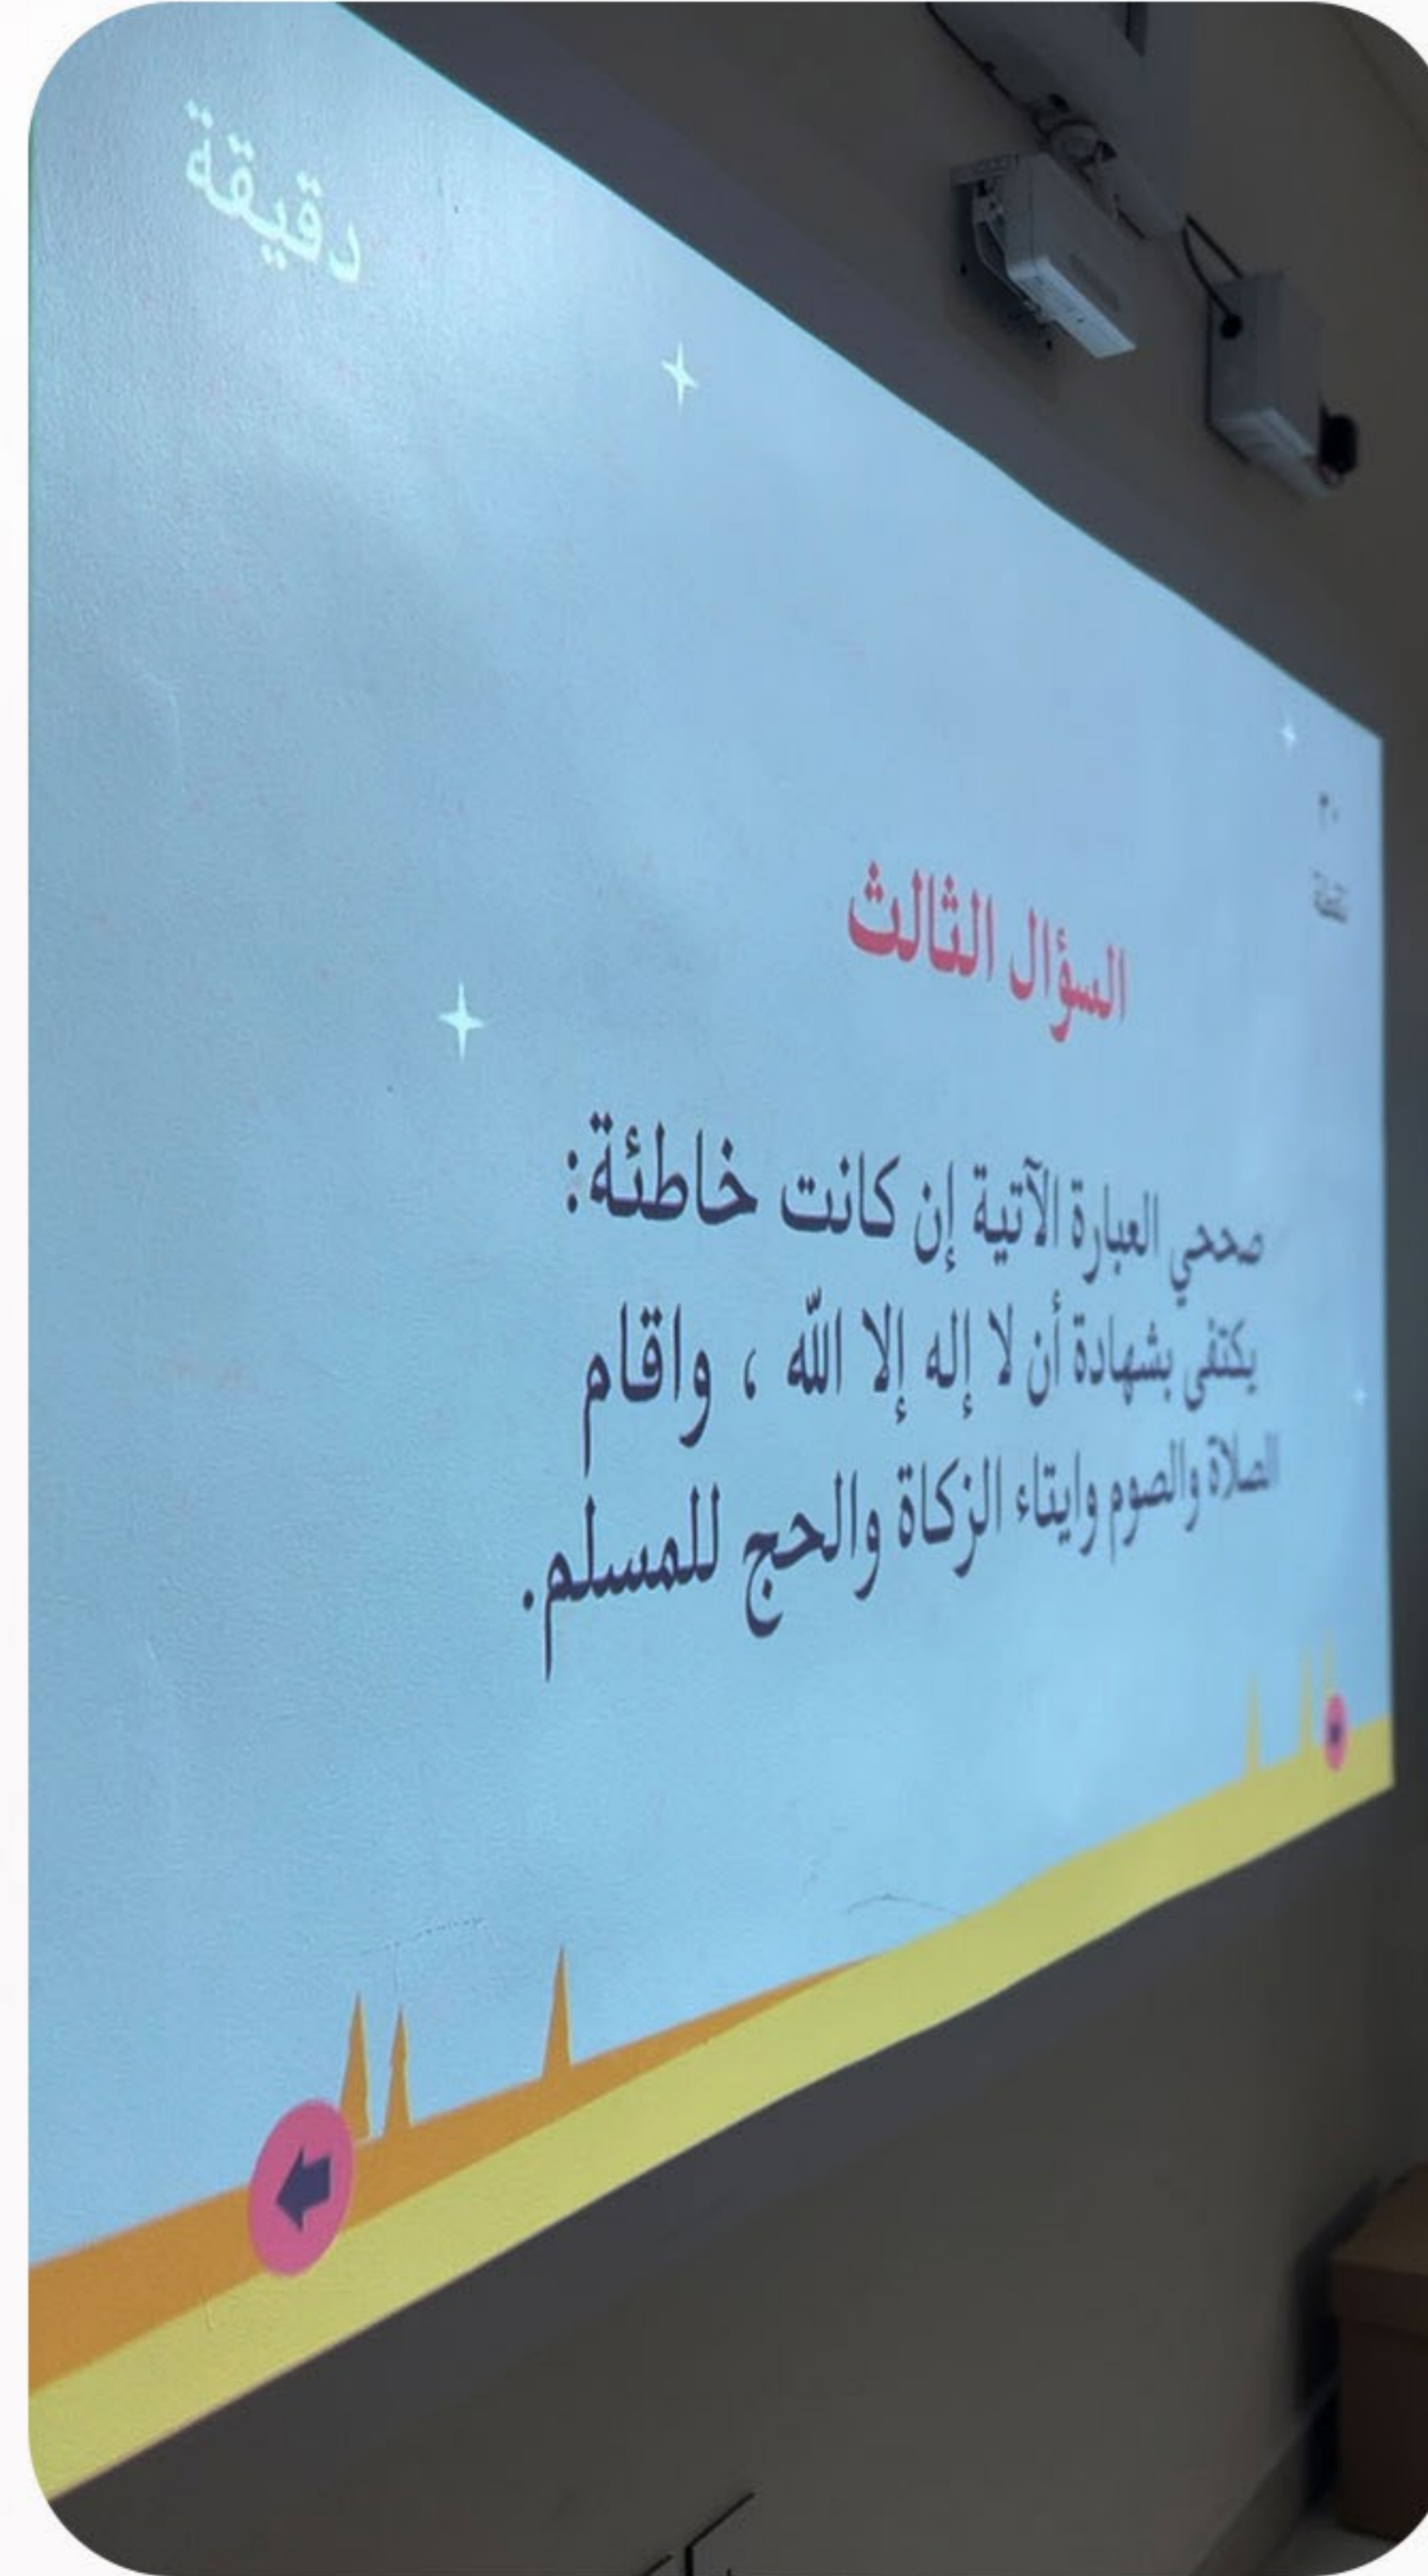 دقيقة
٣٠
نقطة
السؤال الثالث
صححي العبارة الآتية إن كانت خاطئة:
يكتفى بشهادة أن لا إله إلا الله ، واقام
الصلاة والصوم وايتاء الزكاة والحج للمسلم.